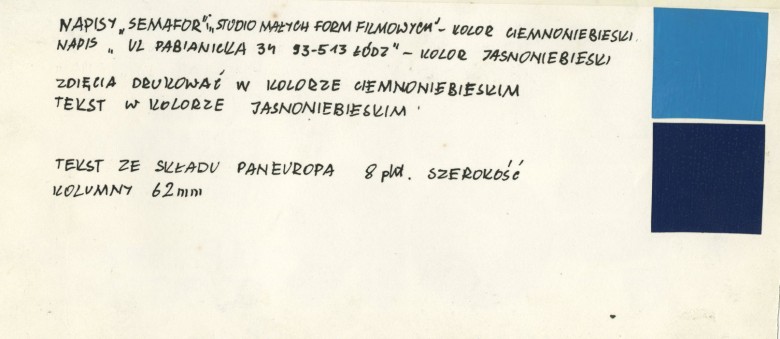 NAPISY „SEMAFOR" i „STUDIO MAŁYCH FORM FILMOWYCH" – KOLOR CIEMNONIEBIESKI
NAPIS „ UL PABIANICKA 34 93-513 ŁÓDŹ" – KOLOR JASNONIEBIESKI
ZDIĘCIA DRUKOWAĆ W KOLORZE CIEMNONIEBIESKIM
TEKST W KOLORZE JASNONIEBIESKIM
TEKST ZE SKŁADU PANEUROPA 8 pkt. SZEROKOŚĆ
KOLUMNY 62mm